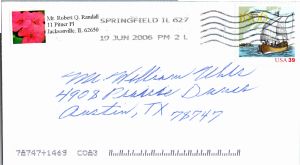 Mr. Robert Q. Randall
11 Pitner Pl
Jacksonville, IL 62650
SPRINGFIELD IL 627
19 JUN 2006 PM 2 L
USA 39
Mr. William Wols
4908
Austin, TX
78747
78747+1469 CO83